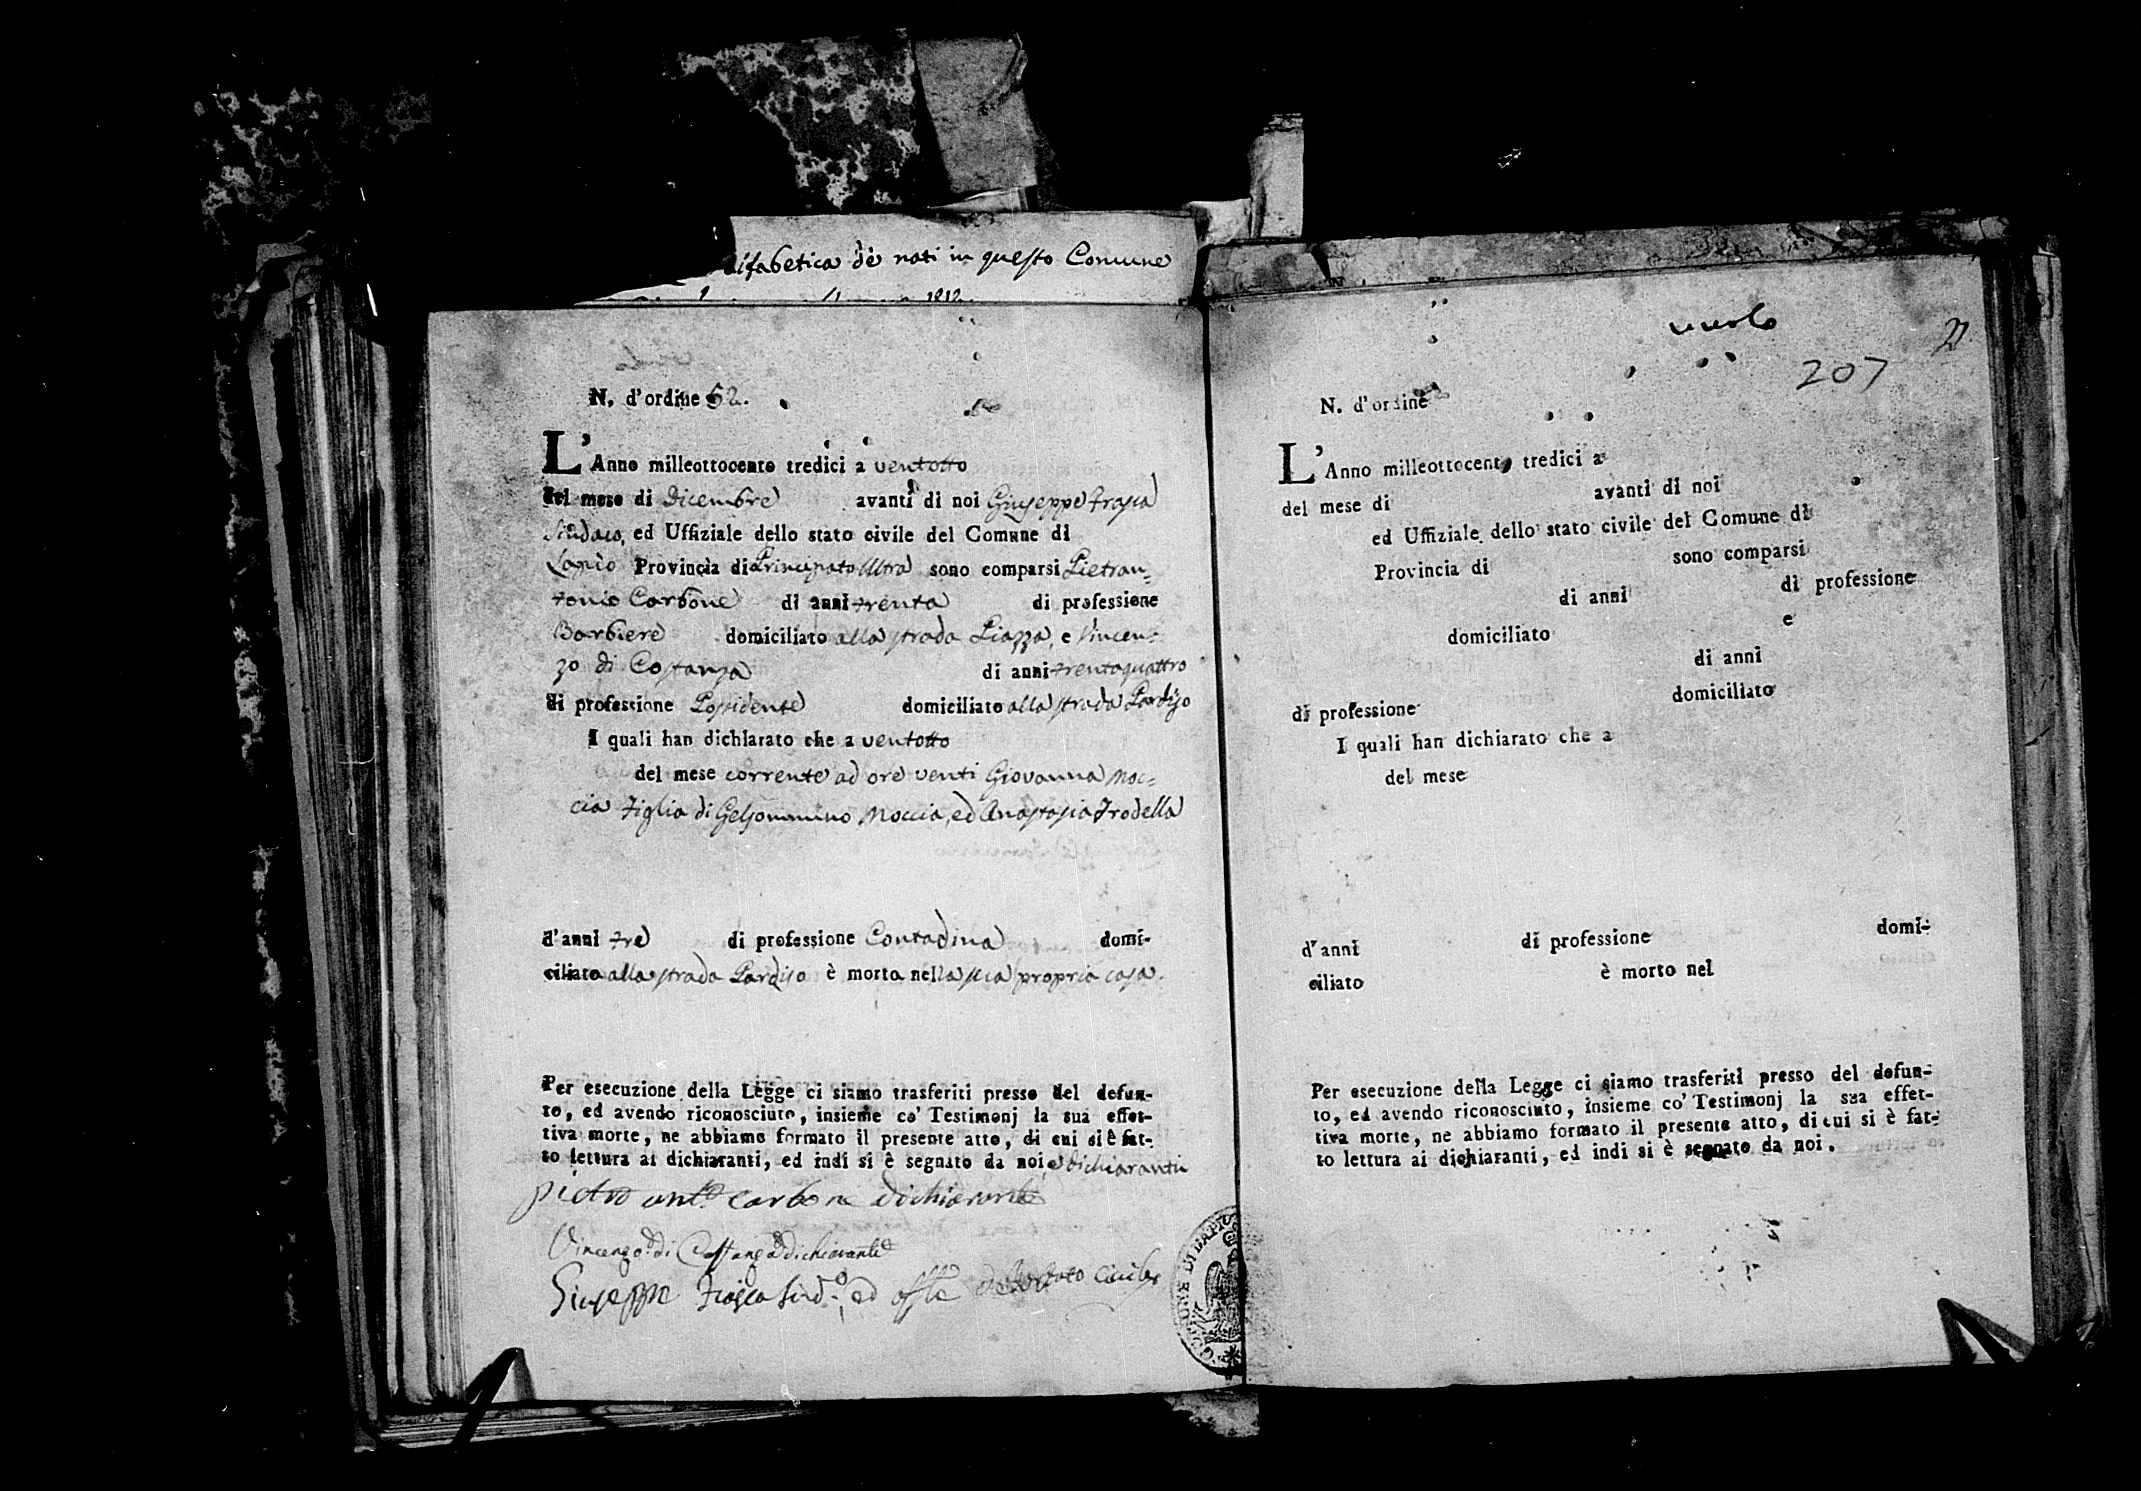 alfabetica de nati in questo Comune
1812
N. d'ordine 52.
L'Anno milleottocento tredici a ventotto
del mese di Dicembre avanti di noi Giuseppe Frasca
Sindaco, ed Uffiziale dello stato civile del Comune di
Lapio Provincia di Principato Ultra sono comparsi Pietran=
tonio Carbone di anni trenta di professione
Barbiere domiciliato alla strada Piazza, e Vincen=
zo di Costanza di anni trentaquattro
di professione Possidente domiciliato alla strada Pardiso
I quali han dichiarato che a ventotto
del mese corrente ad ore venti Giovanna Moc=
cia Figlia di Gelsommino Moccia, ed Anastasia Trodella
d'anni tre di professione Contadina domi-
ciliata alla strada Pardiso è morta nella sua propria casa.
Per esecuzione della Legge ci siamo trasferiti presso del defun-
to, ed avendo riconosciuto, insieme co' Testimonj la sua effet-
tiva morte, ne abbiamo formato il presente atto, di cui si è fat-
to lettura ai dichiaranti, ed indi si è segnato da noi e dichiaranti
pietro ant.o carbone dichiarante
Vincenzo di Costanza dichiarante
Giuseppe Frasca Sind.o ed offle dello stato civile
COMUNE DI LAPIO
207
N. d'ordine
L'Anno milleottocento tredici a
del mese di avanti di noi
ed Uffiziale dello stato civile del Comune di
Provincia di sono comparsi
di anni di professione
domiciliato e
di anni
di professione domiciliato
I quali han dichiarato che a
del mese
d'anni di professione domi-
ciliato è morto nel
Per esecuzione della Legge ci siamo trasferiti presso del defun-
to, ed avendo riconosciuto, insieme co' Testimonj la sua effet-
tiva morte, ne abbiamo formato il presente atto, di cui si è fat-
to lettura ai dichiaranti, ed indi si è segnato da noi.